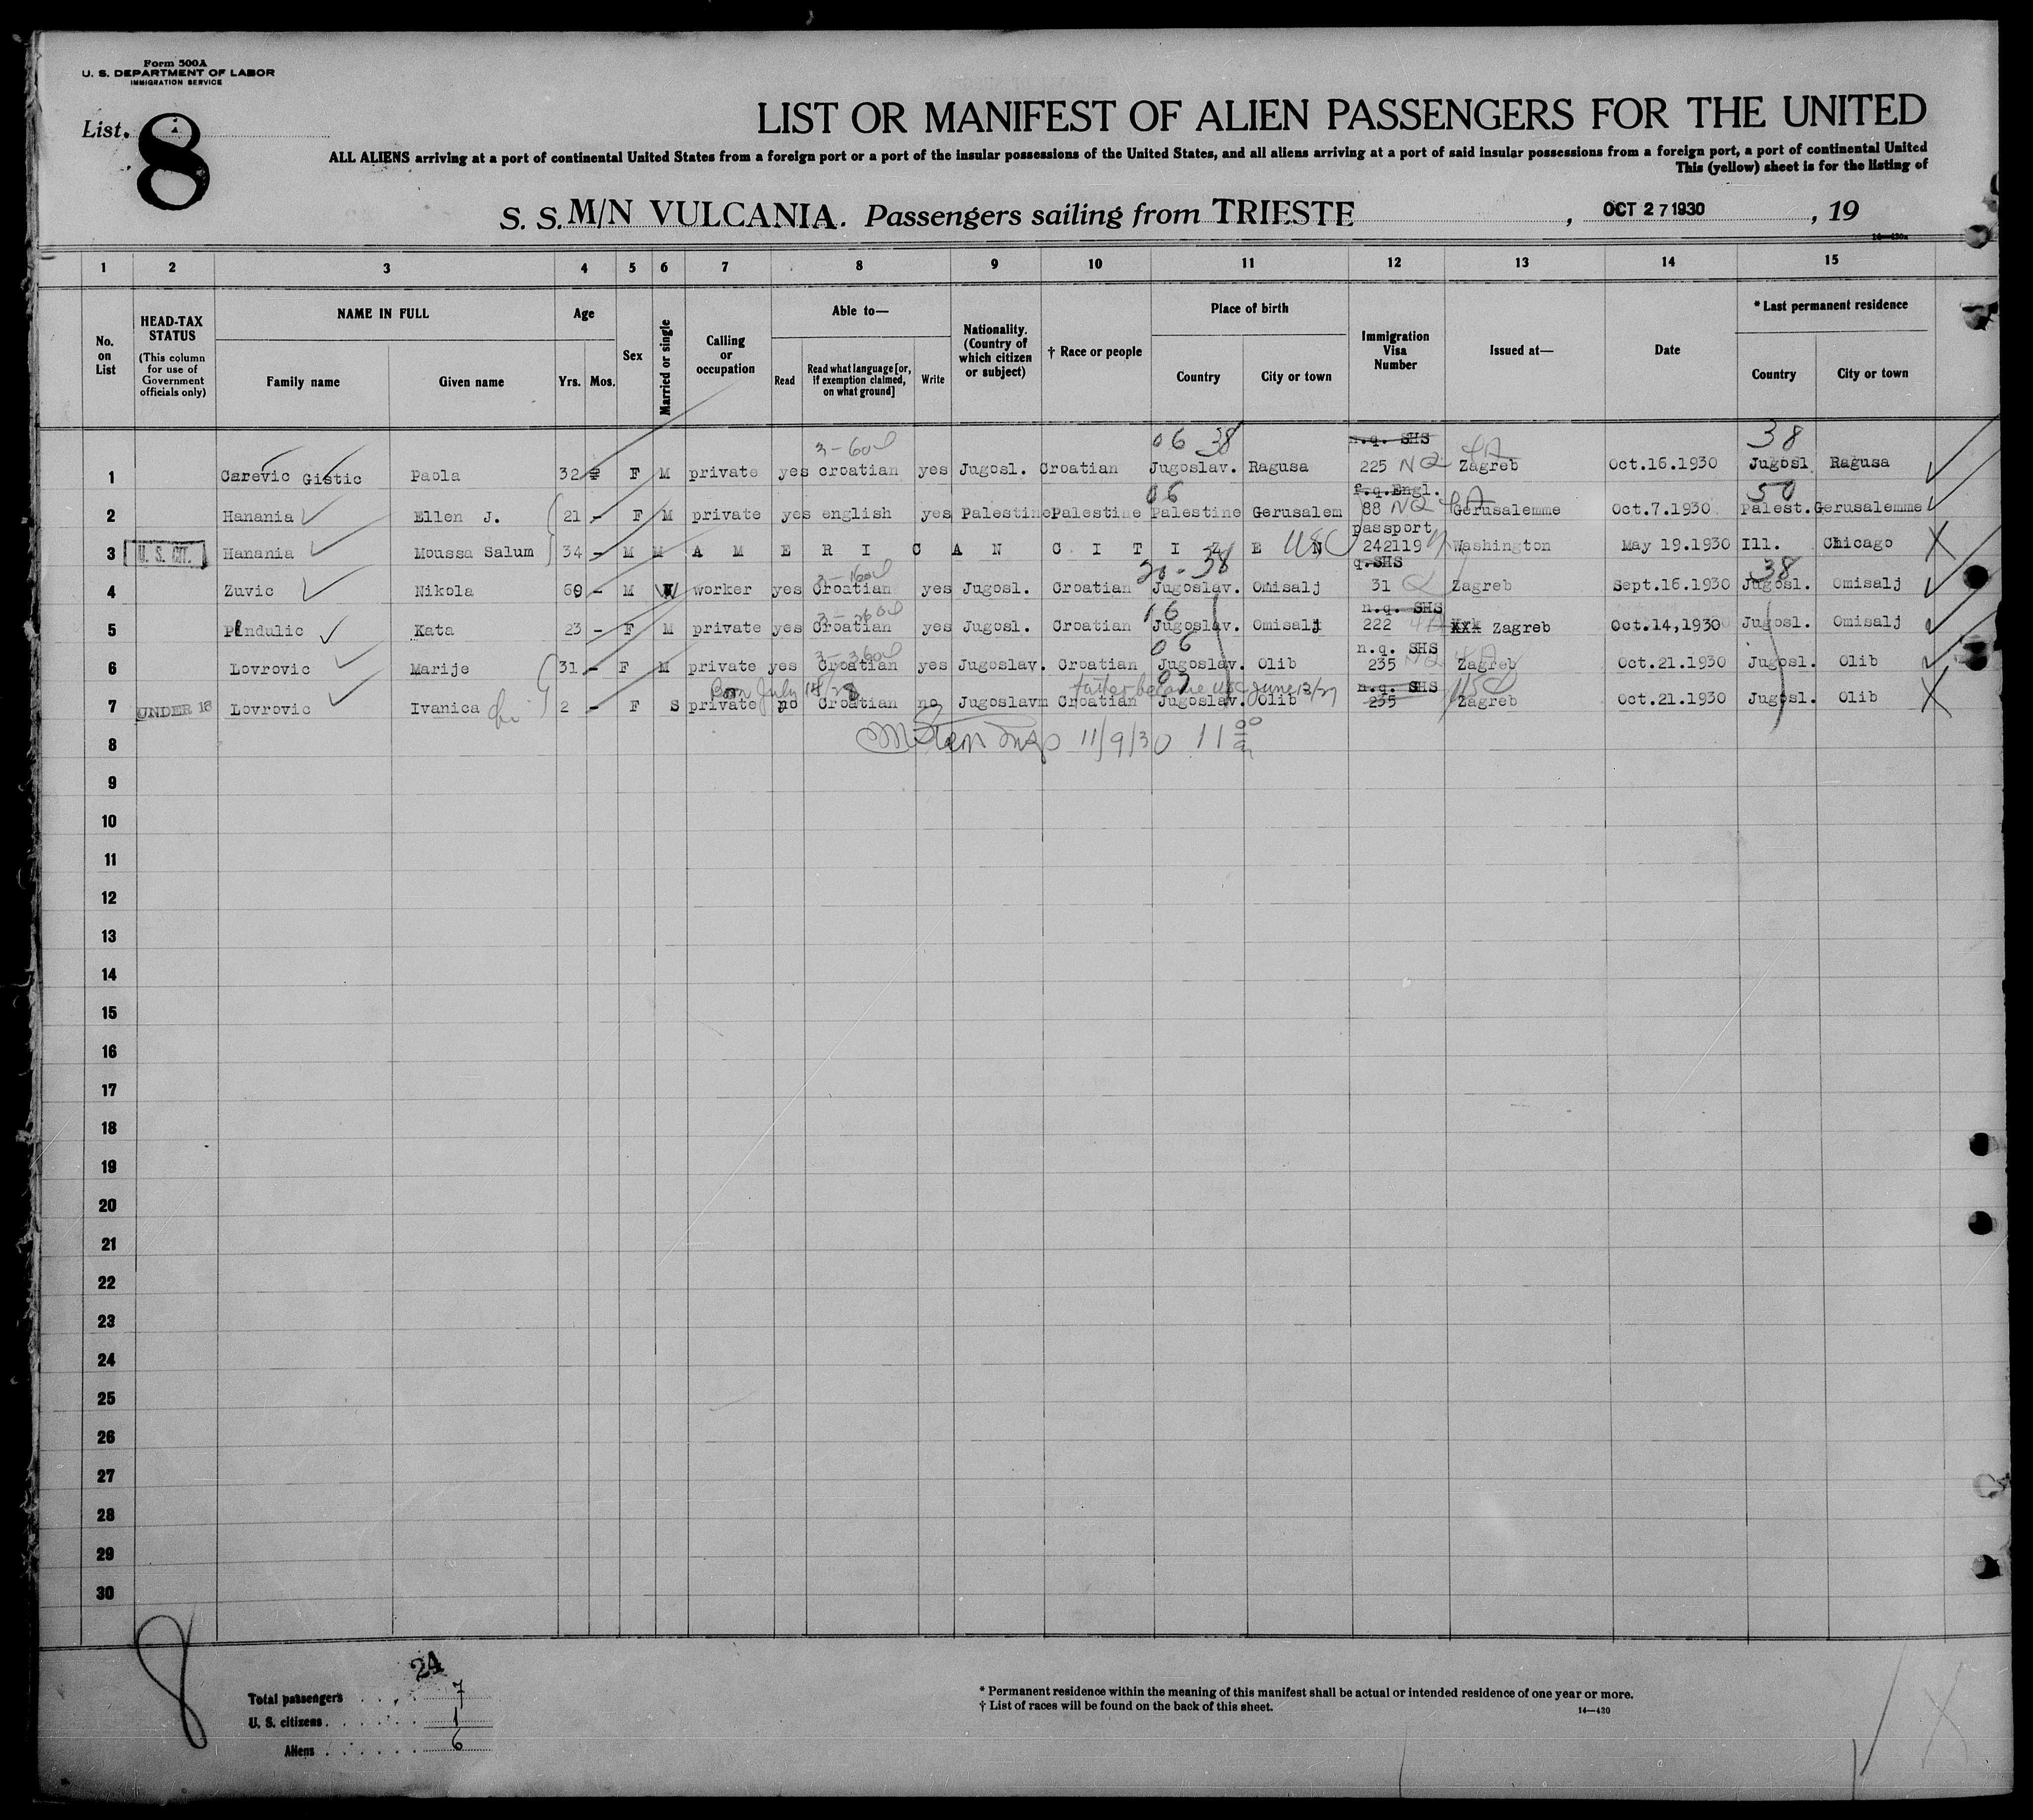 Form 500A
U. S. DEPARTMENT OF LABOR
IMMIGRATION SERVICE
List. 8
LIST OR MANIFEST OF ALIEN PASSENGERS FOR THE UNITED
ALL ALIENS arriving at a port of continental United States from a foreign port or a port of the insular possessions of the United States, and all aliens arriving at a port of said insular possessions from a foreign port, a port of continental United
This (yellow) sheet is for the listing of
S. S. M/N VULCANIA. Passengers sailing from TRIESTE, OCT 27 1930, 19
1 2 3 4 5 6 7 8 9 10 11 12 13 14 15
No. on List
HEAD-TAX STATUS
(This column for use of Government officials only)
NAME IN FULL
Family name Given name
Age
Yrs. Mos.
Sex
Married or single
Calling or occupation
Able to—
Read Read what language [or, if exemption claimed, on what ground] Write
Nationality. (Country of which citizen or subject)
† Race or people
Place of birth
Country City or town
Immigration Visa Number
Issued at—
Date
* Last permanent residence
Country City or town
3-600 06 38 n.q. SHS 4A 38
1 Carevic Gistic Paola 32 F M private yes croatian yes Jugosl. Croatian Jugoslav. Ragusa 225 NQ Zagreb Oct.16.1930 Jugosl Ragusa
06 f.q.Engl. 50
2 Hanania Ellen J. 21 - F M private yes english yes Palestine Palestine Palestine Gerusalem 88 NQ 4A Gerusalemme Oct.7.1930 Palest. Gerusalemme
passport
3 U. S. CIT. Hanania Moussa Salum 34 - M M A M E R I C A N C I T I Z E N USC 242119 Washington May 19.1930 Ill. Chicago
38 q.SHS 38
4 Zuvic Nikola 60 - M W worker yes Croatian yes Jugosl. Croatian Jugoslav. Omisalj 31 Q Zagreb Sept.16.1930 Jugosl. Omisalj
16 n.q. SHS
5 Pendulic Kata 23 - F M private yes Croatian yes Jugosl. Croatian Jugoslav. Omisalj 222 4A Zagreb Oct.14,1930 Jugosl. Omisalj
06 n.q. SHS
6 Lovrovic Marije 31 - F M private yes Croatian yes Jugoslav. Croatian Jugoslav. Olib 235 NQ 4A Zagreb Oct.21.1930 Jugosl. Olib
Born July 18/28 father became USC June 12/27 n.q. SHS USC
7 UNDER 16 Lovrovic Ivanica 2 - F S private no Croatian no Jugoslavm Croatian Jugoslav. Olib 235 Zagreb Oct.21.1930 Jugosl. Olib
8 Insp 11/9/30 11 00
9
10
11
12
13
14
15
16
17
18
19
20
21
22
23
24
25
26
27
28
29
30
8
24
Total passengers 7
U. S. citizens 1
Aliens 6
* Permanent residence within the meaning of this manifest shall be actual or intended residence of one year or more.
† List of races will be found on the back of this sheet.
14—420